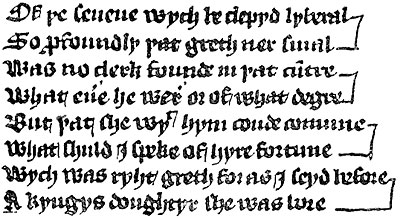 Of þe seuene wych be clepyd lyberal
So ꝓfoundly þat greth ner smal
Was no clerk founde in þat cūtre
What euͥe he weͥre or of what degre
But þat she wyᵗ hym coude comune
What shuld I speke of hyre fortune
Wych was ryht greth for as I seyd before
A kyngys doughtyr she was bore